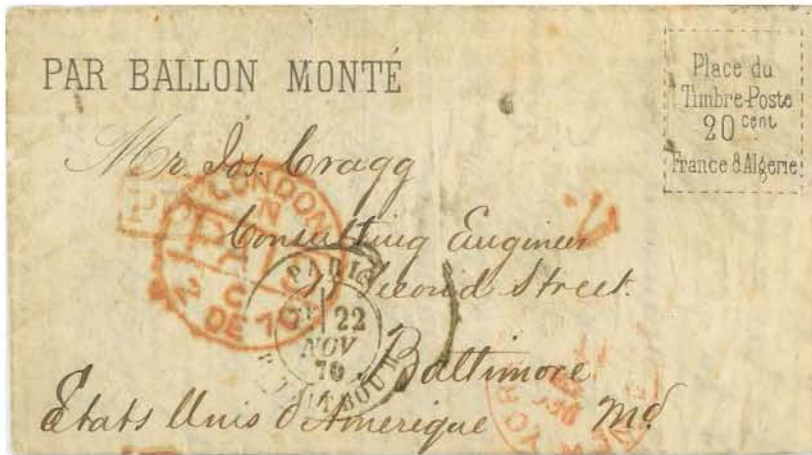 PAR BALLON MONTÉ
Place du
Timbre-Poste
20 cent
France & Algérie
Mr. Jos. Cragg
Consulting Engineer
Second Street.
Baltimore
Md
États Unis d'Amerique
PD
LONDON
PAID
DE 70
PARIS
22
NOV
70
NEW YORK